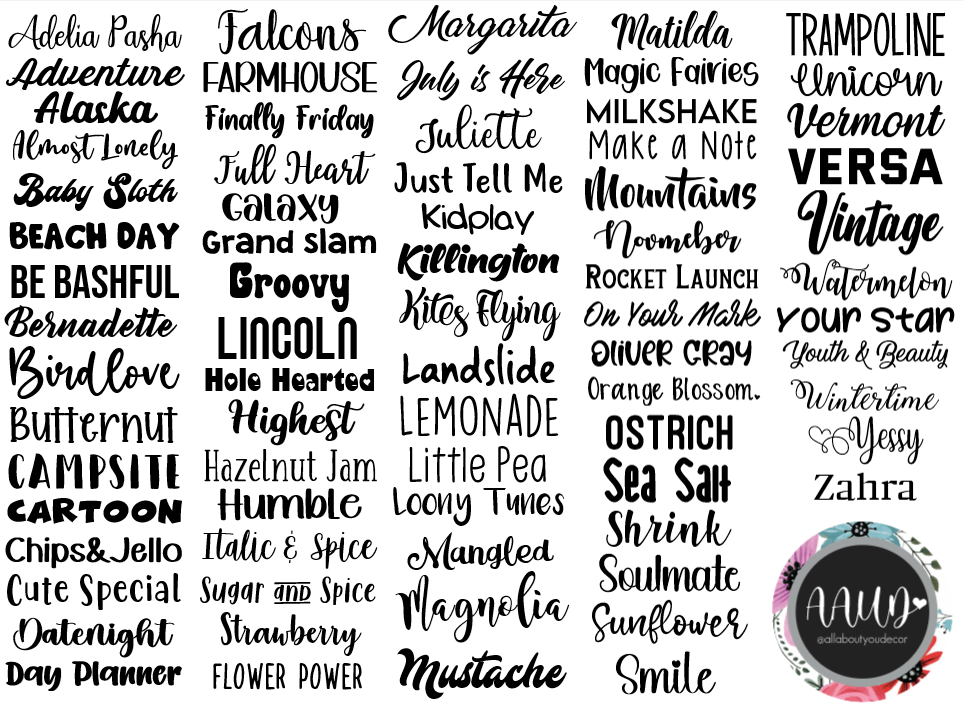 Adelia Pasha
Adventure
Alaska
Almost Lonely
Baby Sloth
BEACH DAY
BE BASHFUL
Bernadette
Birdlove
Butternut
CAMPSITE
CARTOON
Chips&Jello
Cute Special
Datenight
Day Planner
Falcons
FARMHOUSE
Finally Friday
Full Heart
GaLaXY
Grand slam
Groovy
LINCOLN
Hole Hearted
Highest
Hazelnut Jam
Humble
Italic & Spice
Sugar and Spice
Strawberry
FLOWER POWER
Margarita
July is Here
Juliette
Just Tell Me
Kidplay
Killington
Kites Flying
Landslide
LEMONADE
Little Pea
Loony Tunes
Mangled
Magnolia
Mustache
Matilda
Magic Fairies
MILKSHAKE
Make a Note
Mountains
Novmeber
ROCKET LAUNCH
On Your Mark
OLIVER GRAY
Orange Blossom.
OSTRICH
Sea Salt
Shrink
Soulmate
Sunflower
Smile
TRAMPOLINE
Unicorn
Vermont
VERSA
Vintage
Watermelon
Your Star
Youth & Beauty
Wintertime
Yessy
Zahra
AAYD
@allaboutyoudecor